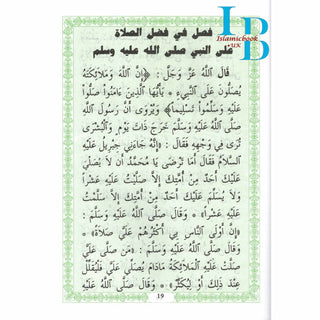 IB
Islamicbook
.UK
فصل في فضل الصلاة
على النبي صلى الله عليه وسلم
قَالَ اللَّهُ عَزَّ وَجَلَّ : ﴿إِنَّ اللَّهَ وَمَلَائِكَتَهُ
يُصَلُّونَ عَلَى النَّبِيِّ * يَاأَيُّهَا الَّذِينَ ءَامَنُوا صَلُّوا
عَلَيْهِ وَسَلِّمُوا تَسْلِيمًا﴾ وَيُرْوَى أَنَّ رَسُولَ اللَّهِ
صَلَّى اللَّهُ عَلَيْهِ وَسَلَّمَ خَرَجَ ذَاتَ يَوْمٍ وَالْبُشْرَى
تُرَى فِي وَجْهِهِ فَقَالَ : «إِنَّهُ جَاءَنِي جِبْرِيلُ عَلَيْهِ
السَّلَامُ فَقَالَ أَمَا تَرْضَى يَا مُحَمَّدُ أَنْ لَا يُصَلِّيَ
عَلَيْكَ أَحَدٌ مِنْ أُمَّتِكَ إِلَّا صَلَّيْتُ عَلَيْهِ عَشْرًا
وَلَا يُسَلِّمَ عَلَيْكَ أَحَدٌ مِنْ أُمَّتِكَ إِلَّا سَلَّمْتُ
عَلَيْهِ عَشْرًا» * وَقَالَ صَلَّى اللَّهُ عَلَيْهِ وَسَلَّمَ :
«إِنَّ أَوْلَى النَّاسِ بِي أَكْثَرُهُمْ عَلَيَّ صَلَاةً» *
وَقَالَ صَلَّى اللَّهُ عَلَيْهِ وَسَلَّمَ : «مَنْ صَلَّى عَلَيَّ
صَلَّتْ عَلَيْهِ الْمَلَائِكَةُ مَادَامَ يُصَلِّي عَلَيَّ فَلْيُقَلِّلْ
عِنْدَ ذَلِكَ أَوْ لِيُكَثِّرْ» * وَقَالَ صَلَّى اللَّهُ عَلَيْهِ
19